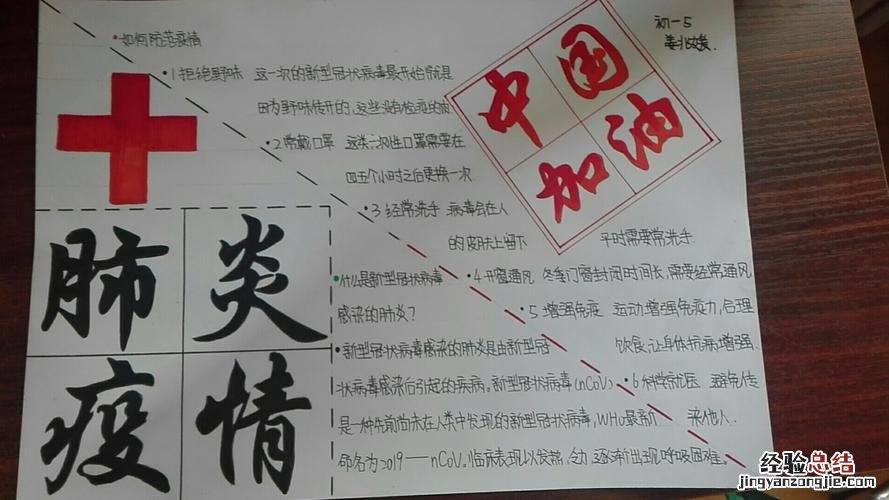 初一5
姜兆媛.
•如何防范疫情
•1拒绝野味 这一次的新型冠状病毒最开始就是
因为野味传开的,这些没有检疫的肉
•2常戴口罩 这类一次性口罩需要在
四五个小时之后更换一次
•3经常洗手 病毒会在人
的皮肤上留下 平时需要常洗手.
•4开窗通风 冬季门窗封闭时间长,需要经常通风
•5增强免疫 运动增强免疫力,合理
饮食,让身体抗病增强.
•6科学就医 避免传
染他人.
中国
加油
肺炎
疫情
•什么是新型冠状病毒
感染的肺炎?
•新型冠状病毒感染的肺炎是由新型冠
状病毒感染后引起的疾病。新型冠状病毒(nCoV)
是一种先前尚未在人类中发现的新型冠状病毒,WHO最新
命名为2019——nCoV.临床表现以发热,乏力,逐渐出现呼吸困难。
经验总结
jingyanzongjie.com